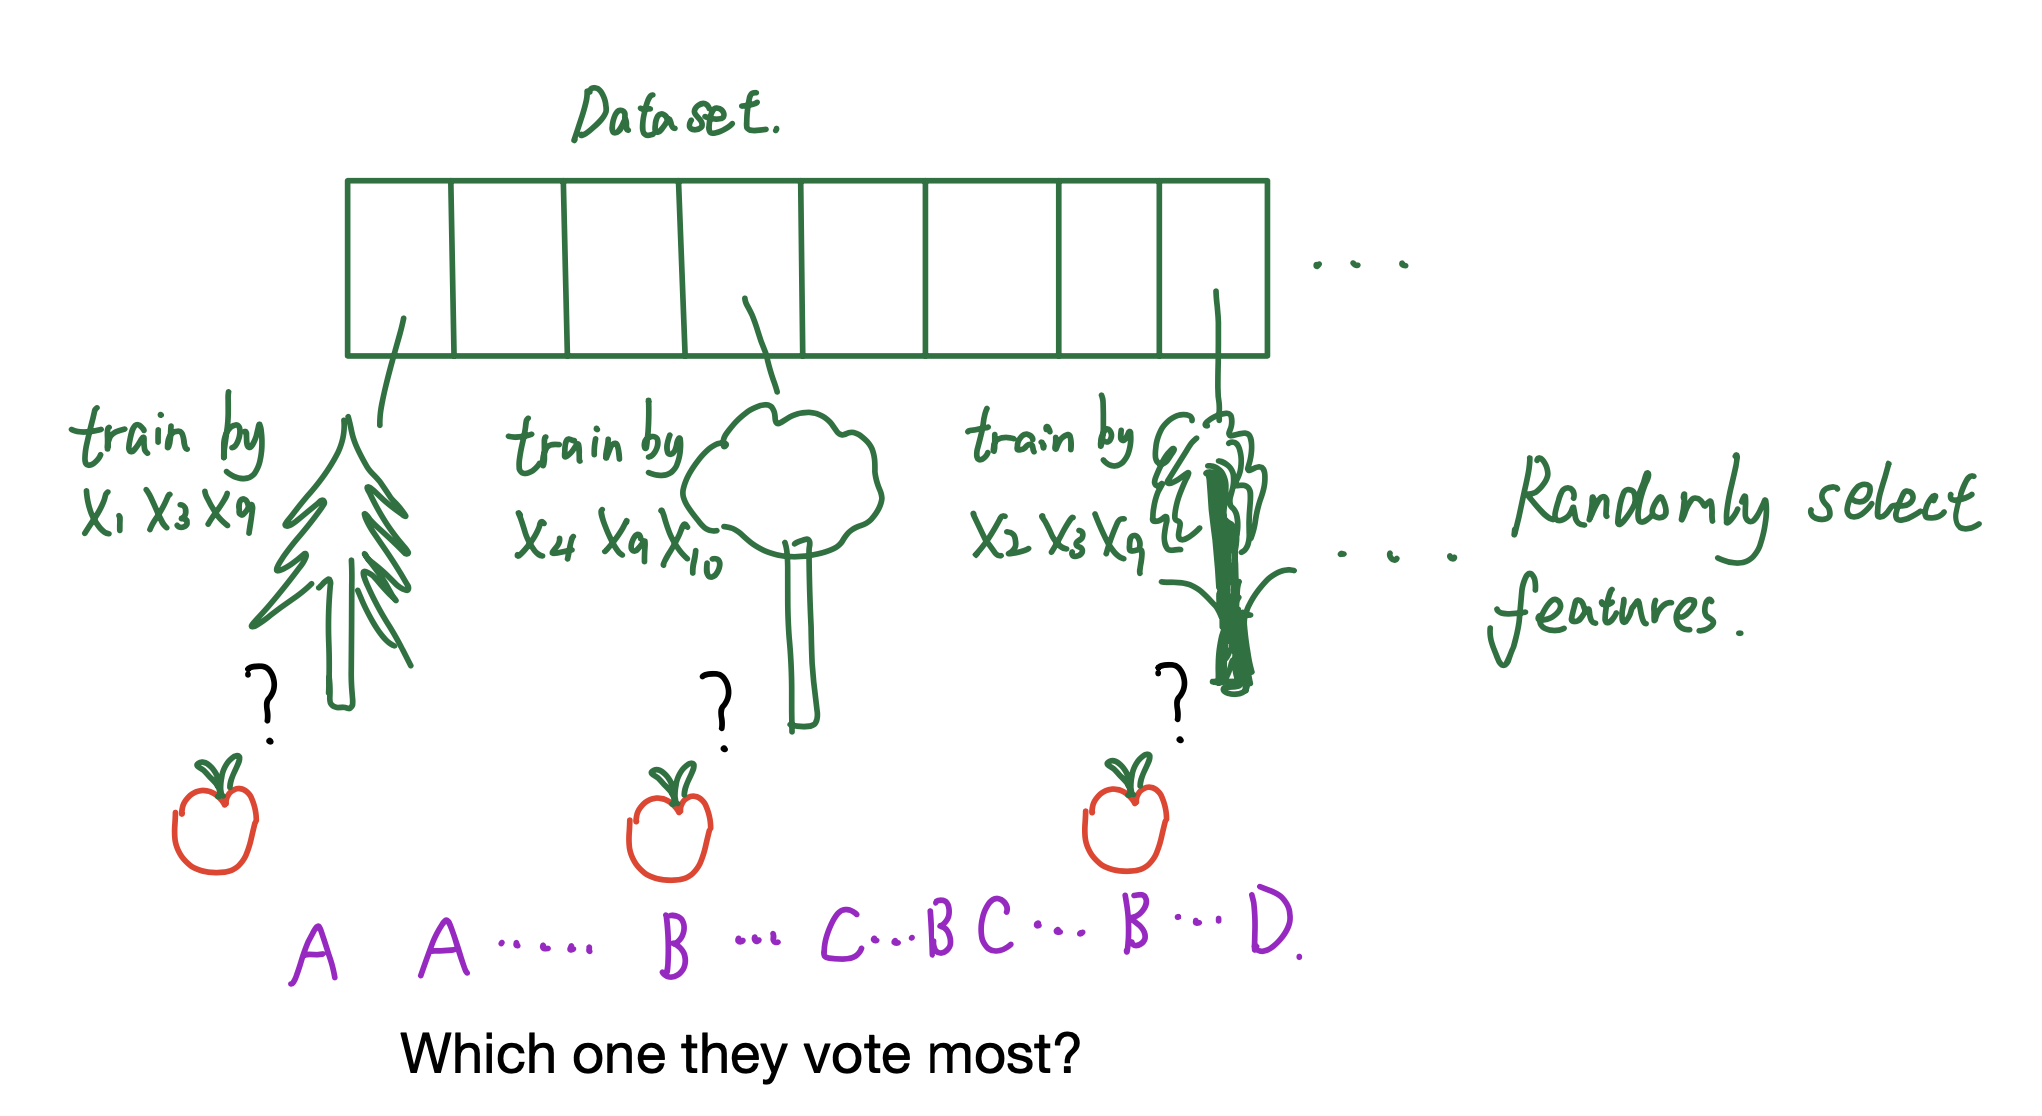 Dataset.
. . .
train by
X₁ X₃ X₉
train by
X₄ X₉ X₁₀
train by
X₂ X₃ X₉
. . .
Randomly select
features.
?
?
?
A A ..... B ... C...B C ... B ... D.
Which one they vote most?